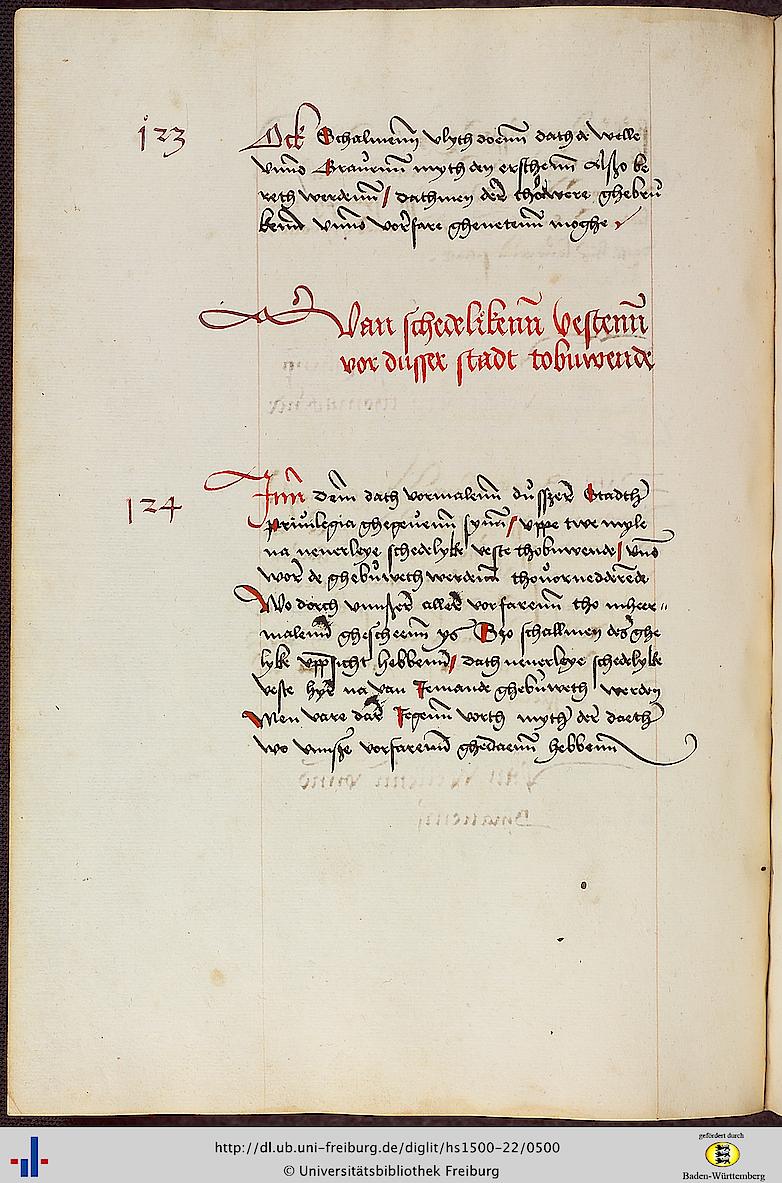 123
Ock Schalmenn vlyth doenn dath de Welle
vnnd Grauenn myth den erschenn Alßo be
reth werdenn / dathmen der thowere ghebru
kenn vnnd vorfare ghenetenn moghe
Van schedelikenn Vestenn
vor dusser stadt tobuwende
124
Inn dem dath vormalenn dusszer Stadth
privilegia ghegeuenn synn / vppe twe myle
na nenerleye schedelyke veste thobuwende / vnd
wor de ghebuweth werdenn thouornedderende
Wo dorch vnnszer aller vorfarenn tho mheer-
malenn ghescheenn ys Szo schallmen des ghe
lyke vppsicht hebbenn / dath nenerleye schedelyke
veste hyr na van Jemande ghebuweth werden
Men vare dar Jegenn vorth myth der daeth
wo vnnsze vorfarenn ghedaenn hebbenn
http://dl.ub.uni-freiburg.de/diglit/hs1500-22/0500
© Universitätsbibliothek Freiburg
gefördert durch
Baden-Württemberg